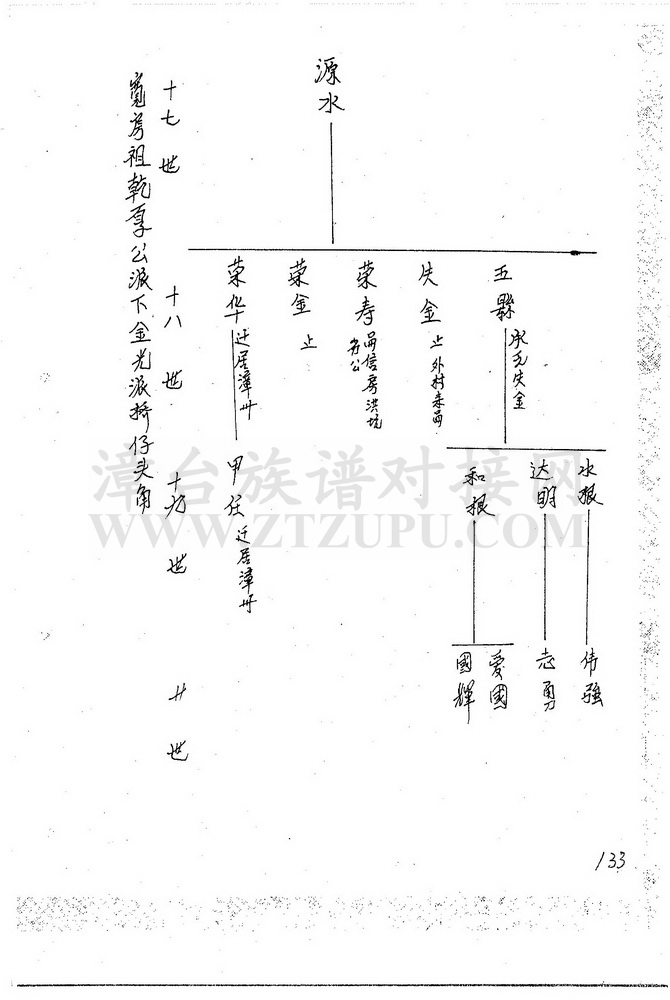 源水
五縣
承无失金
失金
止 外村來
荣寿
信房洪坑
房公
荣金
止
荣华
迁居漳州
水根
达明
和根
甲任
迁居漳州
伟强
志勇
爱國
國輝
十七世
十八世
十九世
廿世
寬房祖乾享公派下金光派桥仔头角
漳台族谱对接网
WWW.ZTZUPU.COM
133